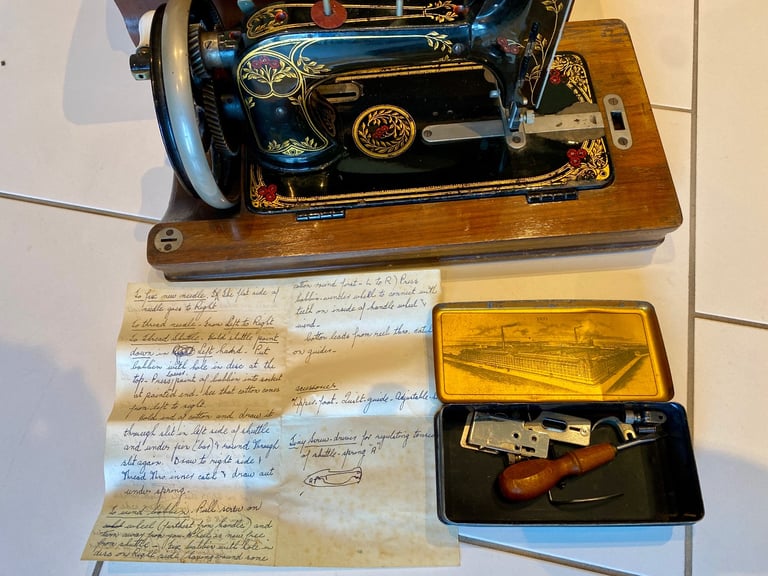 To fix new needle. The flat side of
needle goes to Right
To thread needle. From Left to Right
To thread shuttle. Hold shuttle point
down in left hand. Put
bobbin with hole in disc at the
top. Press point of bobbin into socket
at pointed end. See that cotton comes
from left to right
Hold end of cotton and draw it
through slit in left side of shuttle
and under pin (bar) & round through
slit again. Draw to right side &
thread thro. inner catch & draw out
under spring.
To wind bobbin. Pull screw on
wheel (furthest from handle) and
turn away from you. Wheel is now free
from shuttle. Fix bobbin with hole in
disc on Right side (having wound some
cotton round first - L to R) Press
bobbin-winder wheel to connect with
teeth on inside of handle wheel &
wind.
Cotton leads from reel thro.
on guides.
accessories
foot. Quilt-guide. Adjustable
Tiny screw-driver for regulating tension
of shuttle-spring A